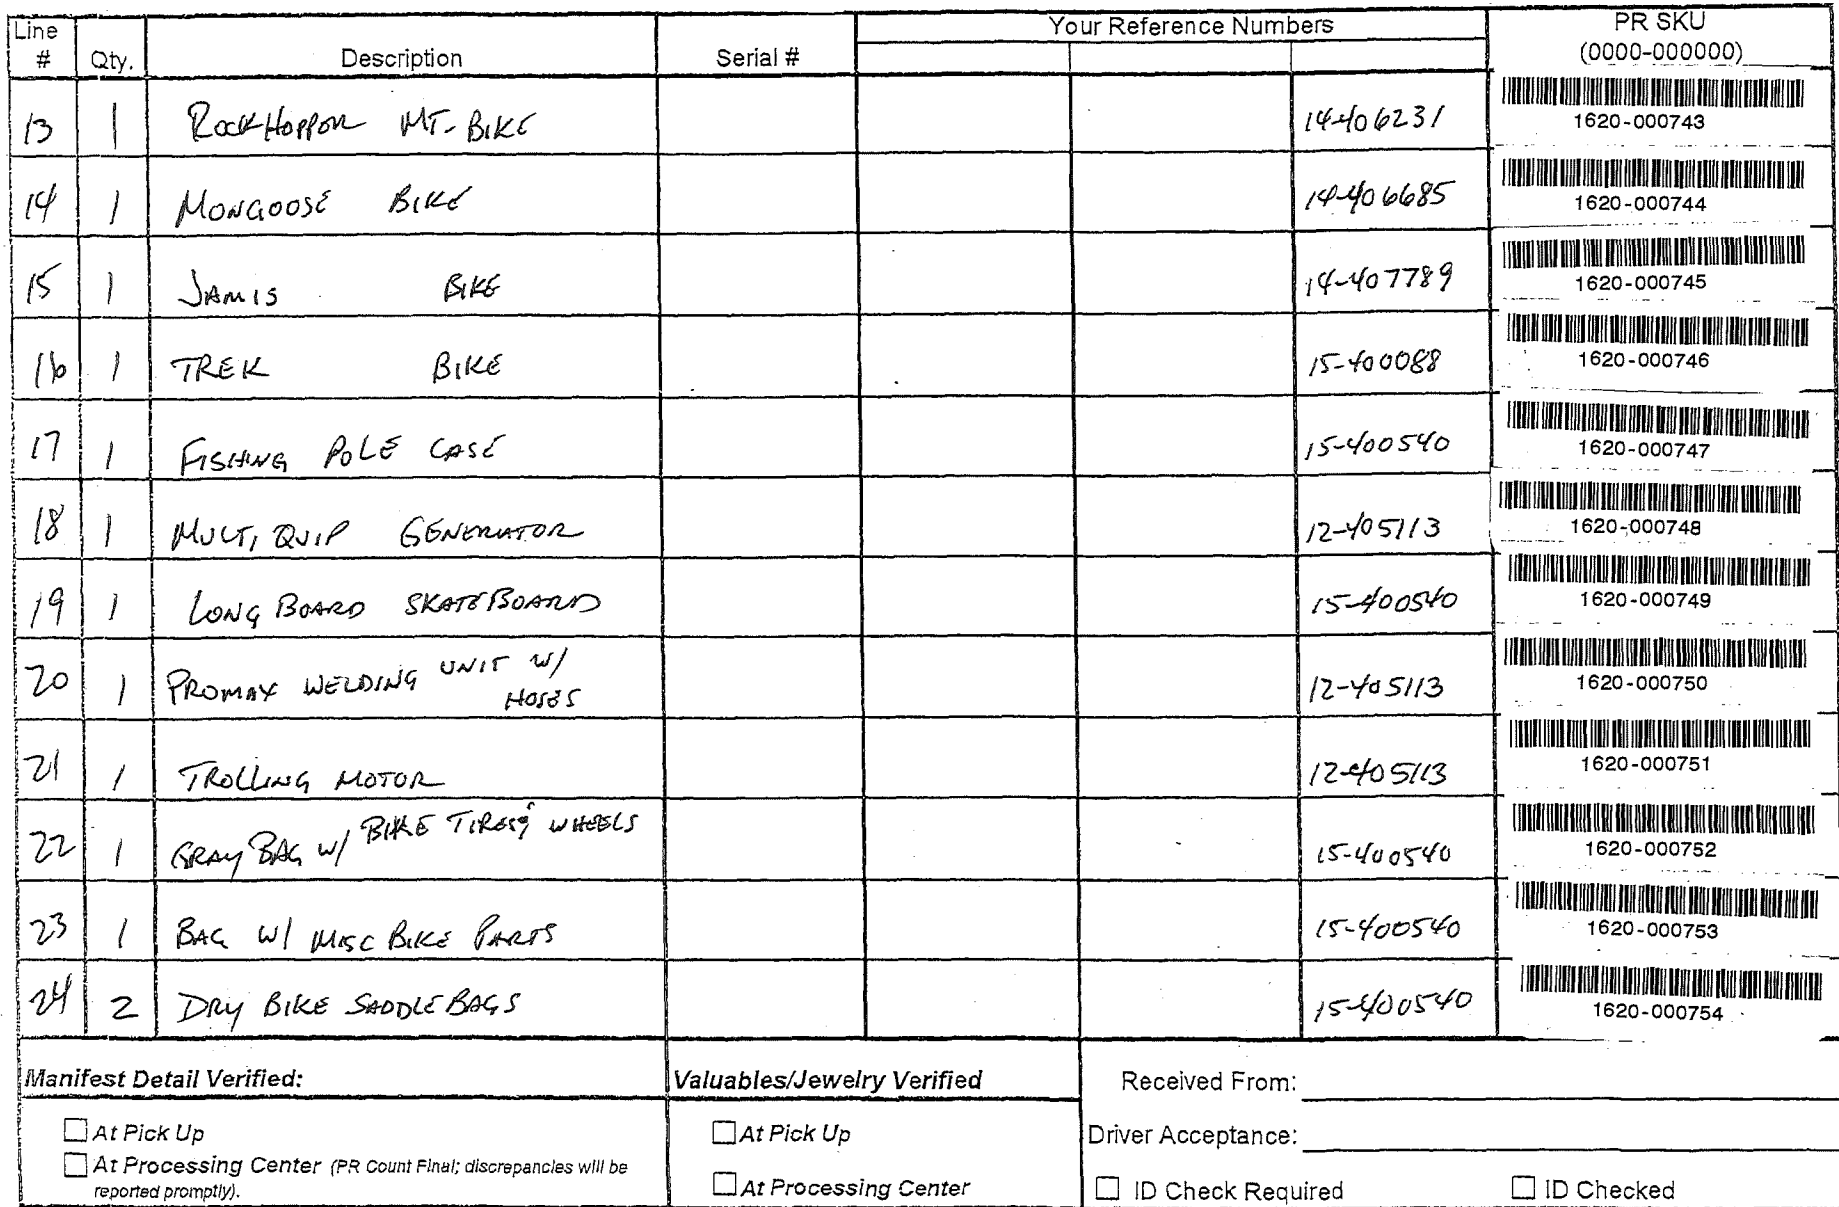 Line # Qty. Description Serial # Your Reference Numbers PR SKU (0000-000000)
13 1 ROCKHOPPOR MT-BIKE 14-406231 1620-000743
14 1 MONGOOSE BIKE 14-406685 1620-000744
15 1 JAMIS BIKE 14-407789 1620-000745
16 1 TREK BIKE 15-400088 1620-000746
17 1 FISHING POLE CASE 15-400540 1620-000747
18 1 MULTI QUIP GENERATOR 12-405113 1620-000748
19 1 LONG BOARD SKATEBOARD 15-400540 1620-000749
20 1 PROMAX WELDING UNIT W/ HOSES 12-405113 1620-000750
21 1 TROLLING MOTOR 12-405113 1620-000751
22 1 GRAY BAG W/ BIKE TIRES & WHEELS 15-400540 1620-000752
23 1 BAG W/ MISC BIKE PARTS 15-400540 1620-000753
24 2 DRY BIKE SADDLEBAGS 15-400540 1620-000754
Manifest Detail Verified: Valuables/Jewelry Verified Received From:
At Pick Up At Pick Up Driver Acceptance:
At Processing Center (PR Count Final; discrepancies will be
reported promptly). At Processing Center ID Check Required ID Checked